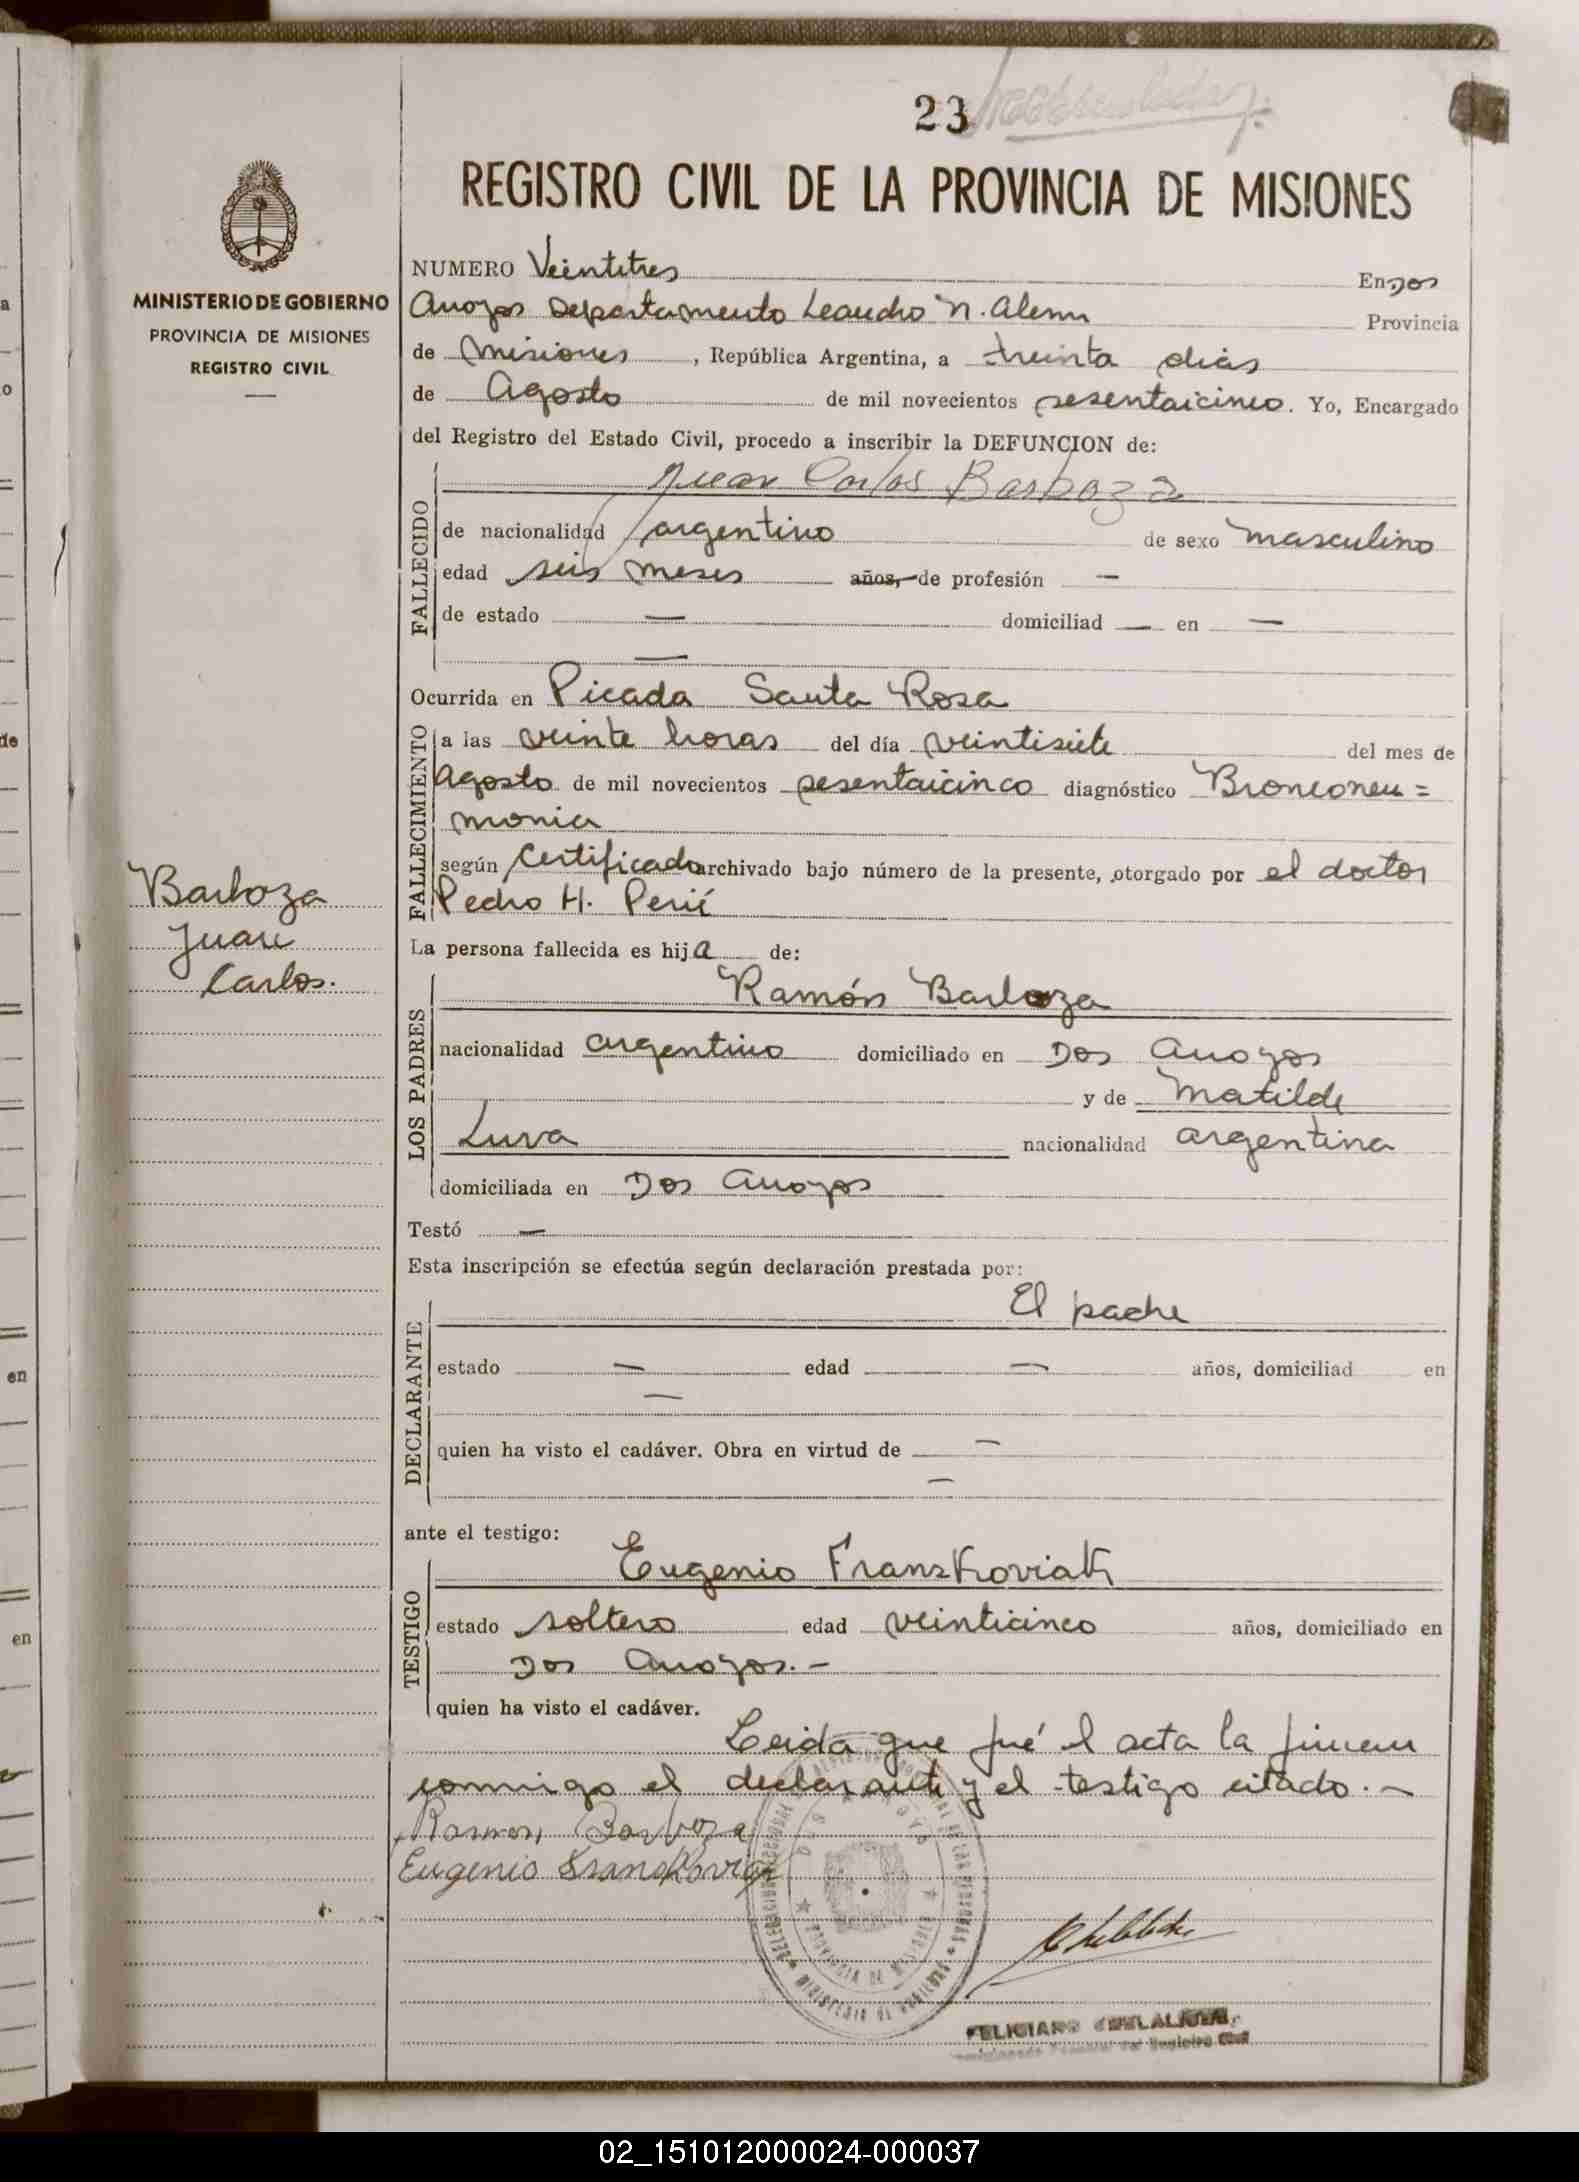 23
REGISTRO CIVIL DE LA PROVINCIA DE MISIONES
MINISTERIO DE GOBIERNO
PROVINCIA DE MISIONES
REGISTRO CIVIL
Barboza
Juan
Carlos.
NUMERO Veintitres En Dos
Arroyos Departamento Leandro N. Alem Provincia
de Misiones, República Argentina, a treinta dias
de Agosto de mil novecientos sesentaicinco. Yo, Encargado
del Registro del Estado Civil, procedo a inscribir la DEFUNCION de:
Juan Carlos Barboza
FALLECIDO
de nacionalidad argentino de sexo masculino
edad seis meses años, de profesión —
de estado — domiciliad — en —
—
Ocurrida en Picada Santa Rosa
FALLECIMIENTO
a las veinte horas del día veintisiete del mes de
Agosto de mil novecientos sesentaicinco diagnóstico Bronconeu=
monia
según Certificado archivado bajo número de la presente, otorgado por el doctor
Pedro H. Perié
La persona fallecida es hija de:
LOS PADRES
Ramón Barboza
nacionalidad argentino domiciliado en Dos Arroyos
y de Matilde
Luna nacionalidad argentina
domiciliada en Dos Arroyos
Testó —
Esta inscripción se efectúa según declaración prestada por:
DECLARANTE
El padre
estado — edad — años, domiciliad en
—
quien ha visto el cadáver. Obra en virtud de —
—
ante el testigo:
TESTIGO
Eugenio Franskoviak
estado soltero edad veinticinco años, domiciliado en
Dos Arroyos.-
quien ha visto el cadáver.
Leida que fué el acta la firman
conmigo el declarante y el testigo citado.-
Ramon Barboza
Eugenio
PROVINCIA DE MISIONES
MINISTERIO DE GOBIERNO
FELICIANO
Registro Civil
02_151012000024-000037